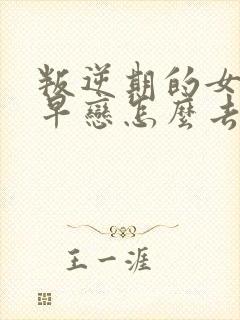 叛逆期的女
早戀怎麼去
王一涯